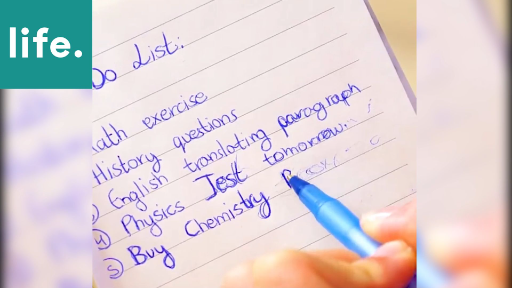 life.
Do List:
Math exercise
History questions
English translating paragraph
4) Physics Test tomorrow...
5) Buy Chemistry